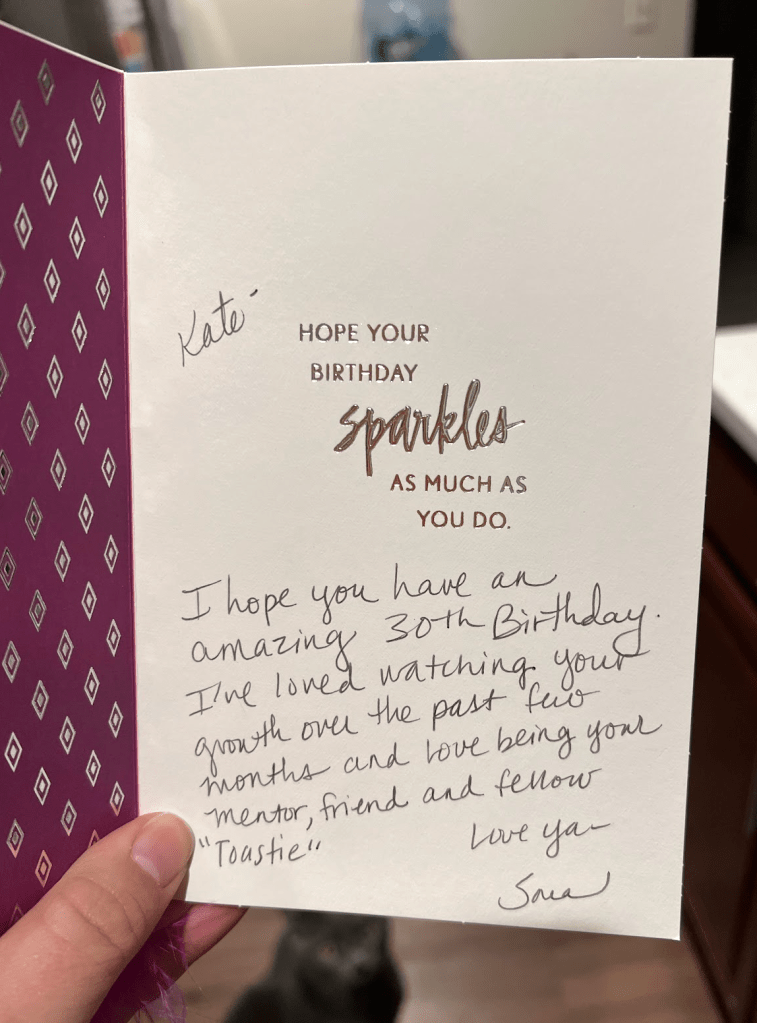 Kate-
HOPE YOUR
BIRTHDAY
sparkles
AS MUCH AS
YOU DO.
I hope you have an
amazing 30th Birthday.
I've loved watching your
growth over the past few
months and love being your
mentor, friend and fellow
"Toastie"
Love ya-